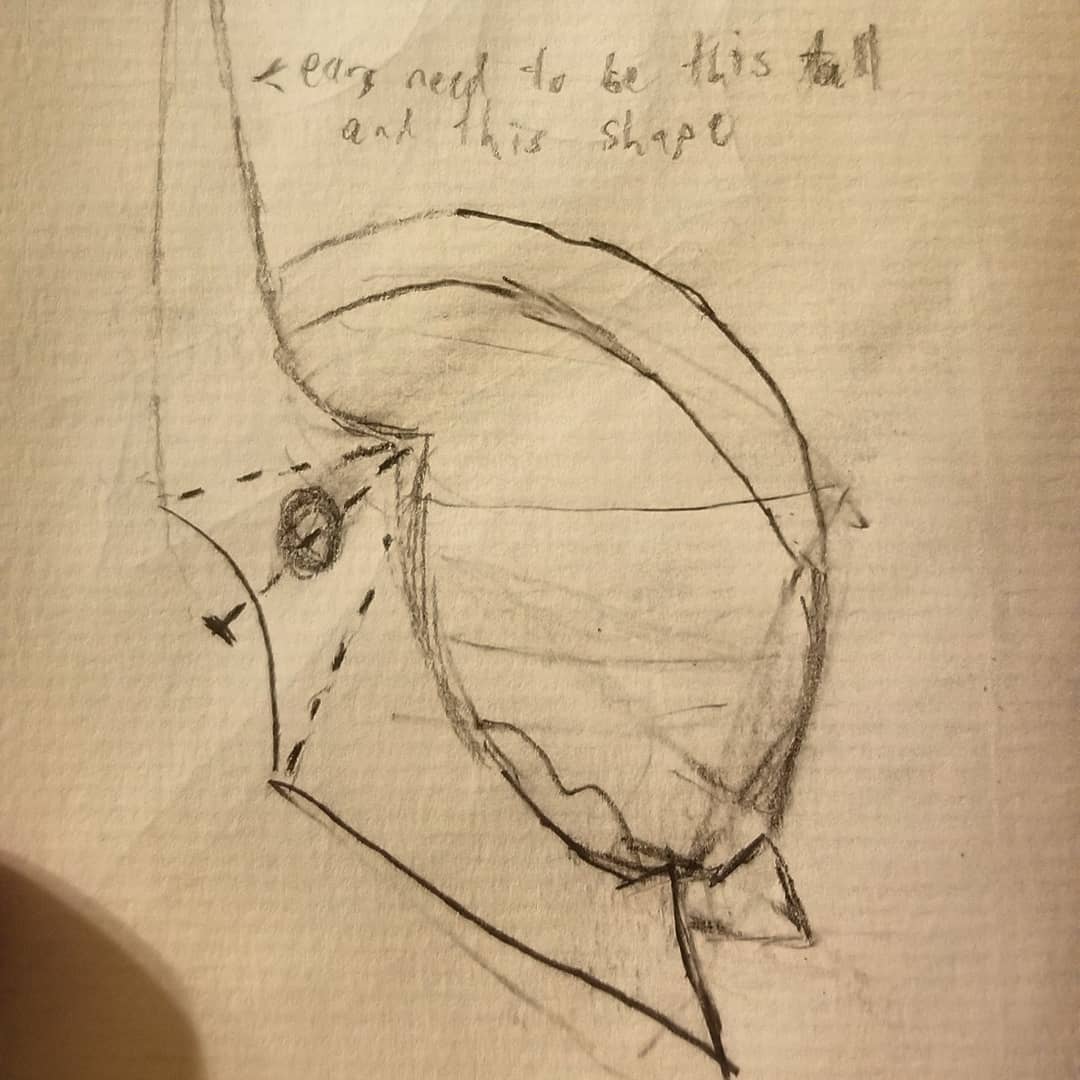 < ears need to be this tall
and this shape